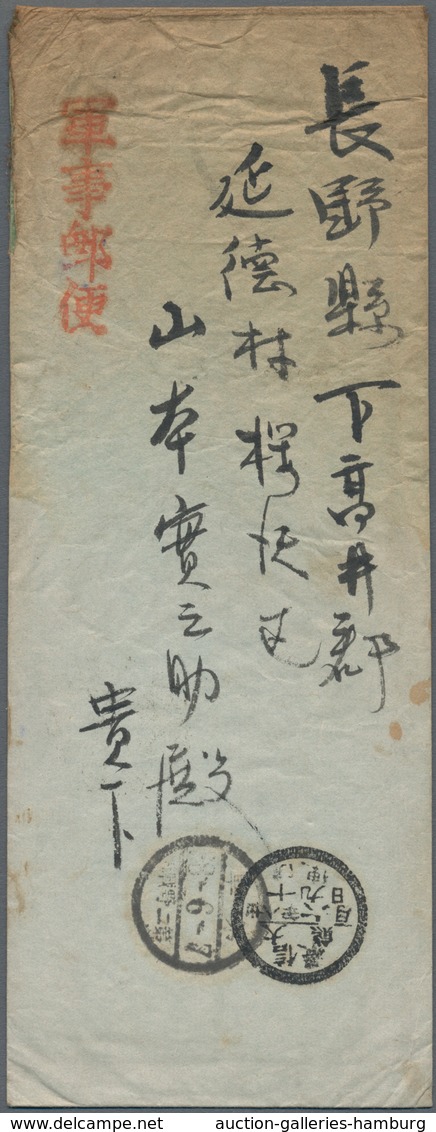 長野縣下高井郡
延德村
山本實之助殿
貴下
軍事郵便
auction-galleries-hamburg
auction-galleries-hamburg